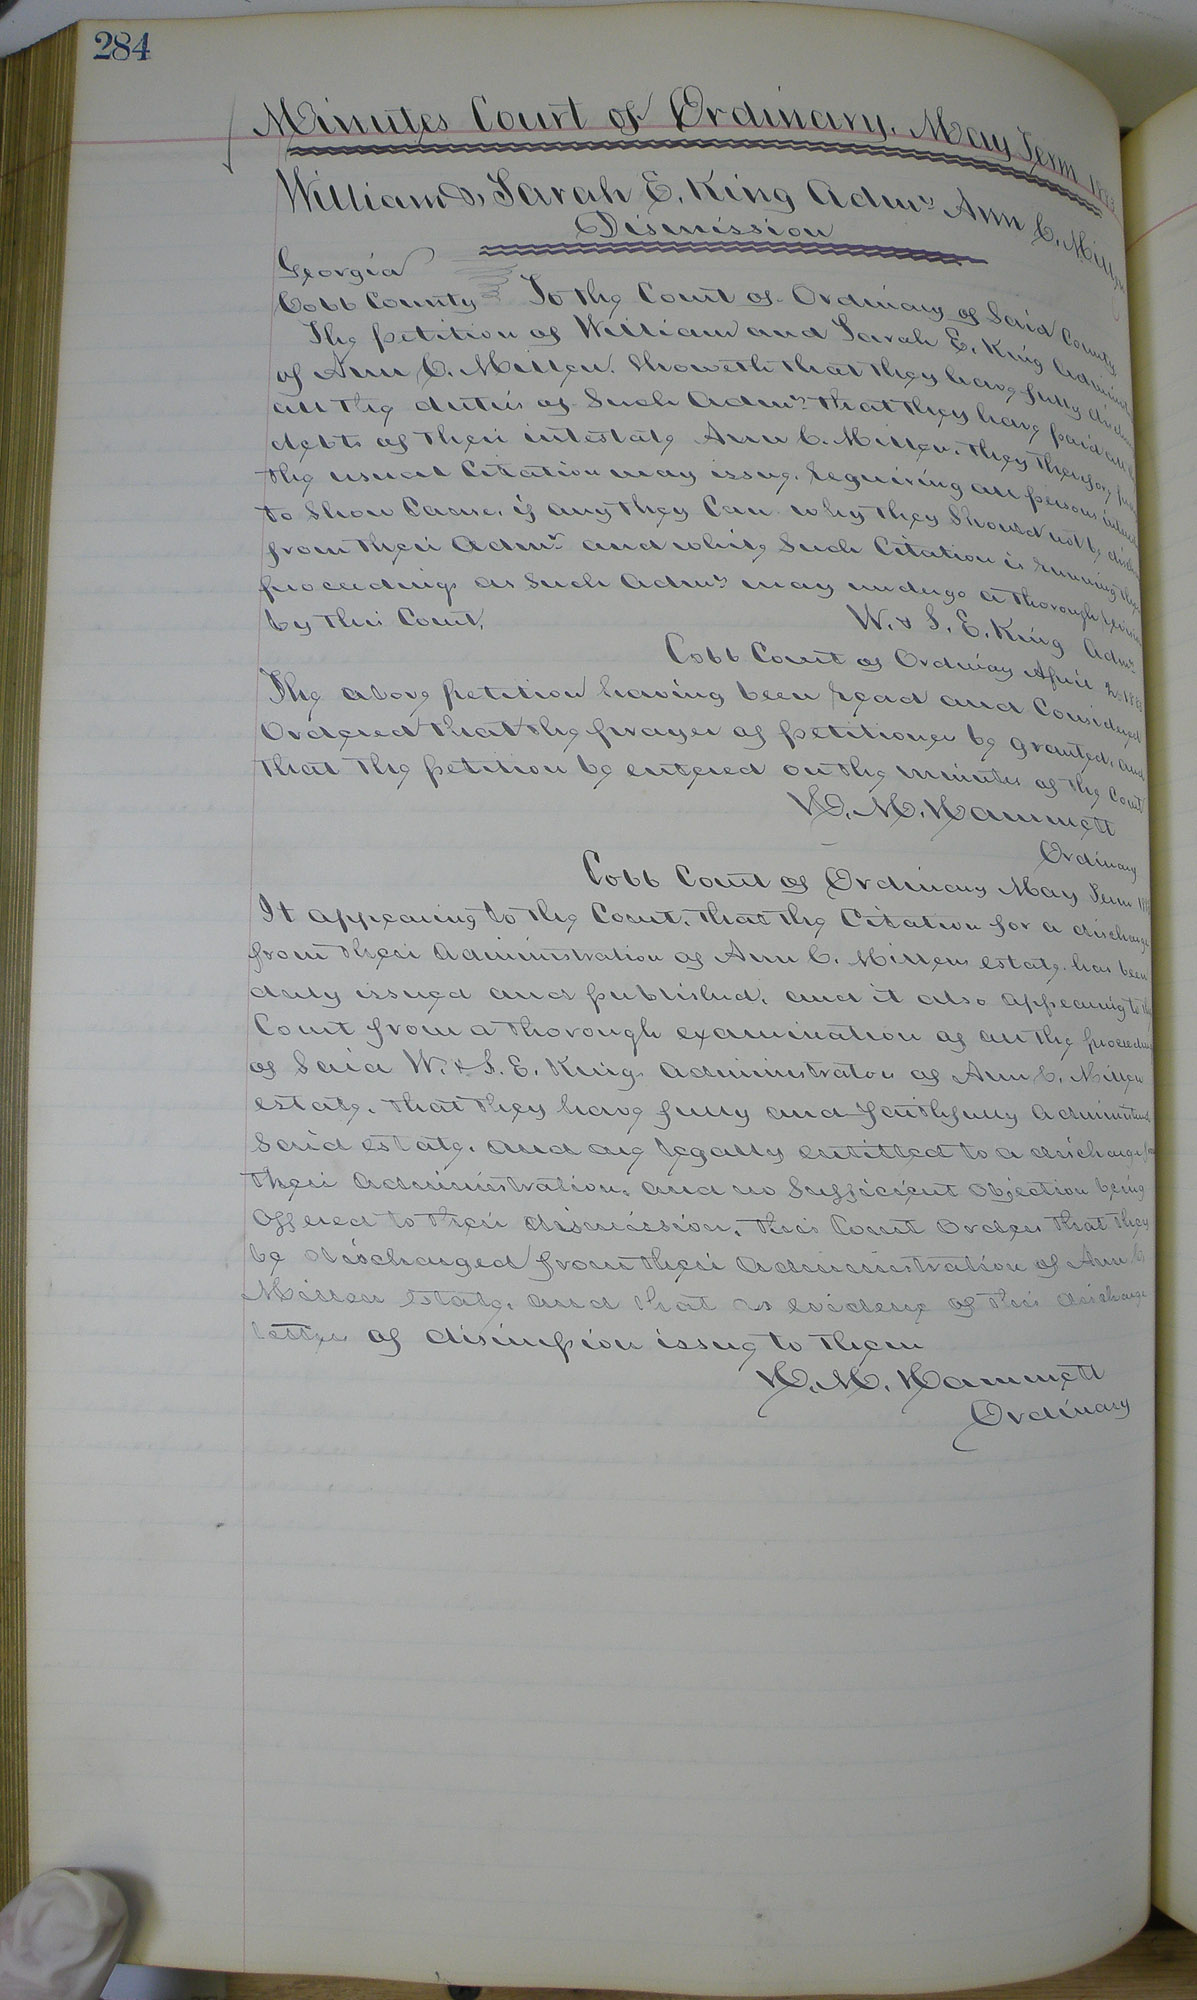 284
Minutes Court of Ordinary, May Term
William & Sarah E. King Admrs Ann C. Millen
Dismission
Georgia
Cobb County To the Court of Ordinary of Said County
The petition of William and Sarah E. King
of Ann C. Millen. Showeth that they have fully
all the duties of Such Admrs that they have paid all
debts of their intestate Ann C. Millen. They therefore
the usual Citation may issue, requiring all persons
to Show Cause, if any they Can why they Should not be
from their Admr and while Such Citation is running their
proceedings as Such Admrs may undergo a thorough
by this Court.
W. & S. E. King Admr
Cobb Court of Ordinary April
The above petition having been read and Considered
Ordered that the prayer of petitioner be granted, and
that the petition be entered on the minutes of the Court
H. M. Hammett
Ordinary
Cobb Court of Ordinary May Term
It appearing to the Court, that the Citation for a discharge
from their administration of Ann C. Millens estate has been
duly issued and published, and it also appearing to the
Court from a thorough examination of all the
of Said W. & S. E. King, Administrators of Ann C. Millen
estate, that they have fully and faithfully
Said estate, and are legally entitled to a discharge
their administration, and no Sufficient Objection being
Offered to their dismission, this Court orders that they
be discharged from their administration of Ann C.
Millen estate, and that as evidence of this discharge
letters of dismission issue to them
H. M. Hammett
Ordinary